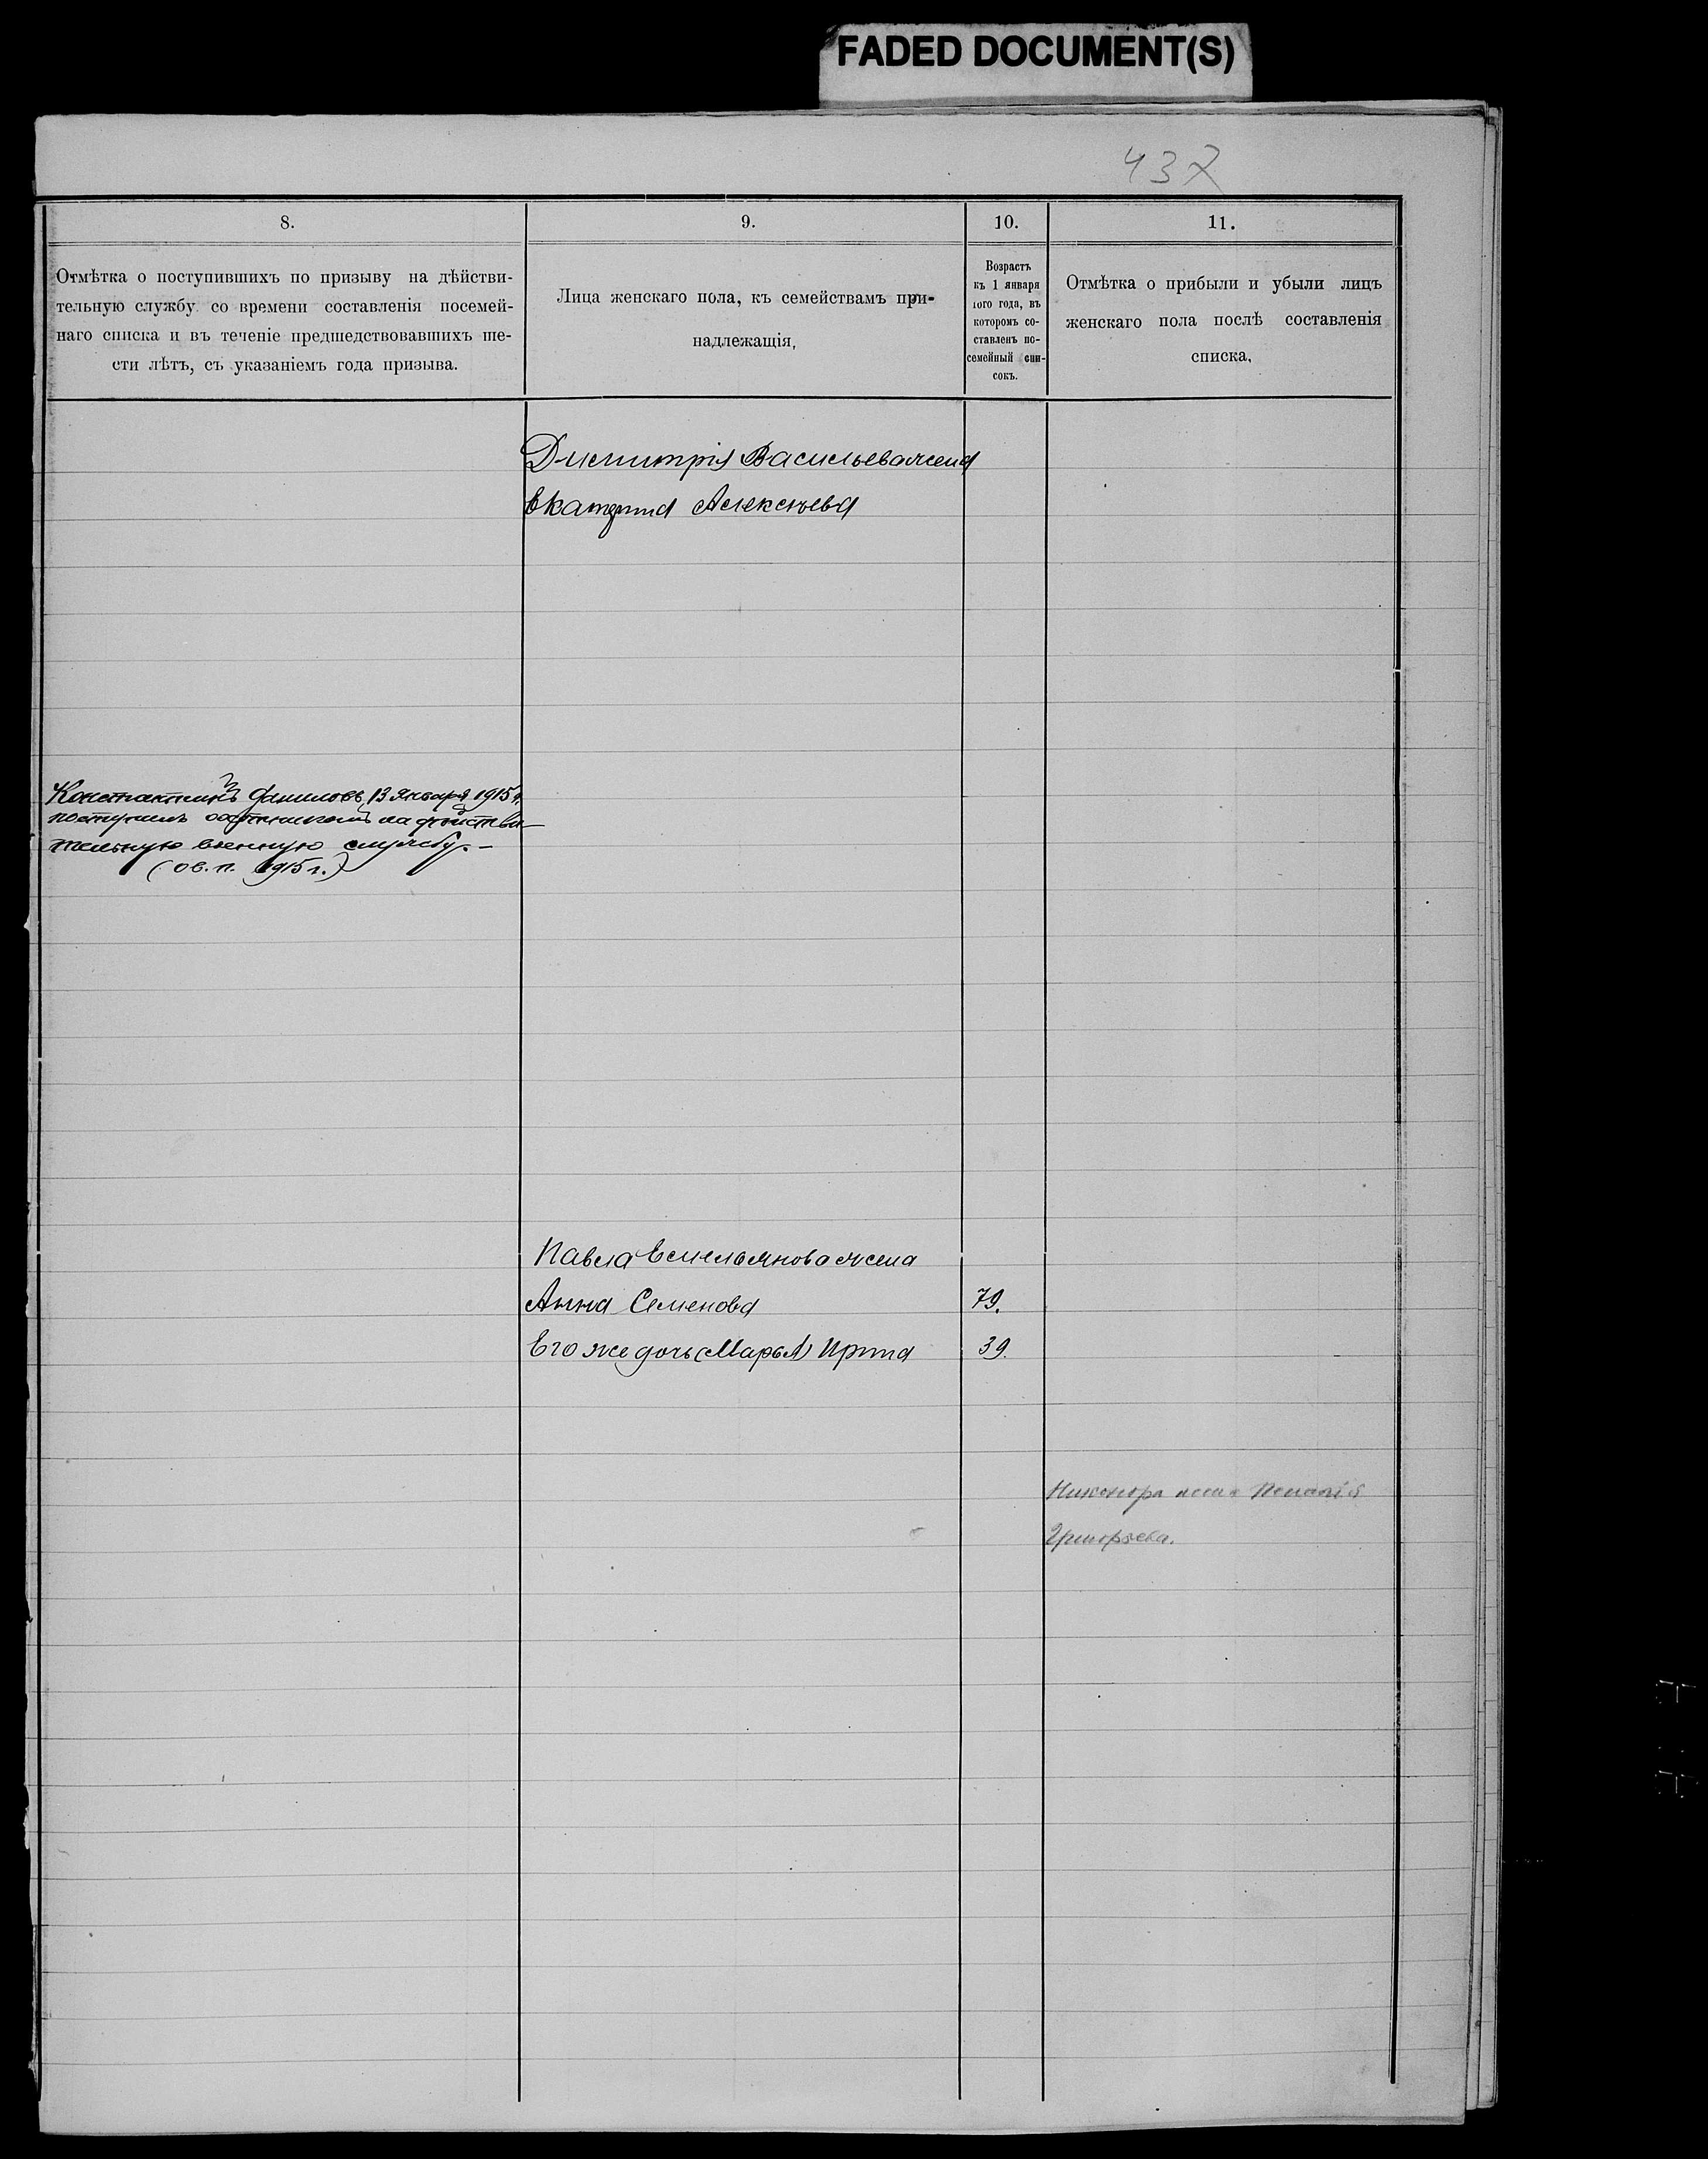 FADED DOCUMENT(S)
437
8.
9.
10.
11.
Отмѣтка о поступившихъ по призыву на дѣйстви-
тельную службу со времени составленія посемей-
наго списка и въ теченіе предшедствовавшихъ ше-
сти лѣтъ, съ указаніемъ года призыва.
Лица женскаго пола, къ семействамъ при-
надлежащія,
Возрастъ
къ 1 января
того года, въ
которомъ со-
ставленъ по-
семейный спи-
сокъ.
Отмѣтка о прибыли и убыли лицъ
женскаго пола послѣ составленія
списка,
Дмитрія Васильева жена
Екатерина Алексѣева
Константинъ Даниловъ, 13 января 1915 г.
поступилъ охотникомъ на дѣйстви-
тельную военную службу.-
(ов. п. 1915 г.)
Павла Емельянова жена
Анна Семенова 79.
Его же дочь (Марья) Ирина 39.
Никонора жена
Григорьева.